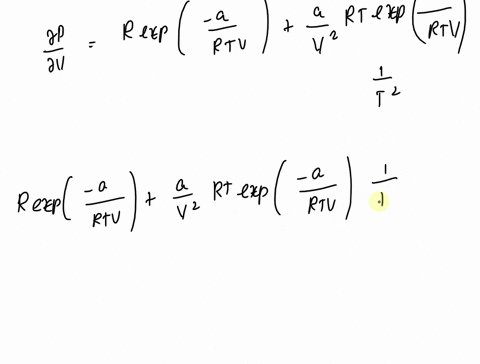 ∂P/∂V = R exp(-a/RTV) + a/V² RT exp( /RTV)
1/T²
R exp(-a/RTV) + a/V² RT exp(-a/RTV) 1/